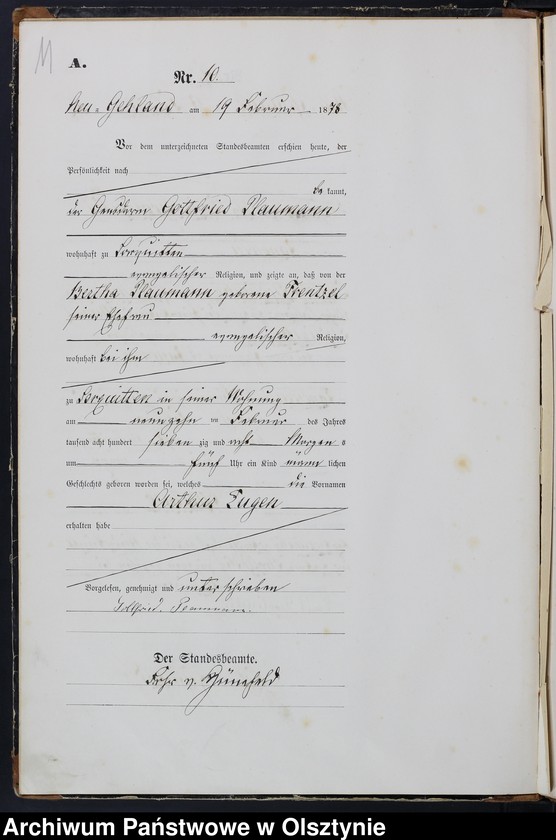 11
A.
Nr. 10.
Neu-Gehland am 19 Februar 1878
Vor dem unterzeichneten Standesbeamten erschien heute, der
Persönlichkeit nach
be kannt,
der Gendarm Gottfried Naumann
wohnhaft zu Sorquitten
evangelischer Religion, und zeigte an, daß von der
Bertha Naumann geborene Frentzel
seiner Ehefrau
evangelischer Religion,
wohnhaft bei ihm
zu Sorquitten in seiner Wohnung
am neunzehn ten Februar des Jahres
tausend acht hundert sieben zig und acht Morgen s
um fünf Uhr ein Kind männ lichen
Geschlechts geboren worden sei, welches die Vornamen
Arthur Eugen
erhalten habe
Vorgelesen, genehmigt und unterschrieben
Gottfried Naumann.
Der Standesbeamte.
Frhr v.
Archiwum Państwowe w Olsztynie